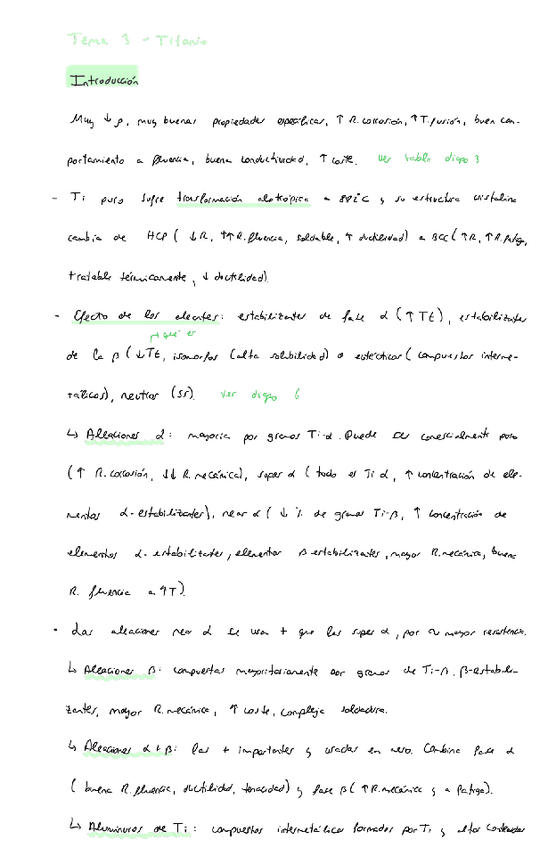 Tema 3 - Titanio
Introducción
Muy ↓ ρ, muy buenas propiedades específicas, ↑ R. corrosión, ↑ T. fusión, buen com-
portamiento a fluencia, buena conductividad, ↑ coste. Ver tabla diapo 3
- Ti puro sufre transformación alotrópica a 882°C y su estructura cristalina
cambia de HCP (↓R, ↑↑R. fluencia, soldable, ↑ ductilidad) a BCC (↑R, ↑R. fatiga,
tratable térmicamente, ↓ ductilidad).
- Efecto de los aleantes: estabilizantes de fase α (↑ Tt), estabilizantes
qué es
de la β (↓ Tt, isomorfos (alta solubilidad) o eutécticos (compuestos interme-
tálicos), neutros (SS). Ver diapo 6
↳ Aleaciones α: mayoría por granos Ti-α. Puede ser comercialmente puro
(↑ R. corrosión, ↓↓ R. mecánica), super α (todo es Ti α, ↑ concentración de ele-
mentos α-estabilizantes), near α (↓ % de granos Ti-β, ↑ concentración de
elementos α-estabilizantes, elementos β-estabilizantes, mayor R. mecánica, buena
R. fluencia a ↑T).
• Las aleaciones near α se usan + que las super α, por su mayor resistencia.
↳ Aleaciones β: compuestas mayoritariamente por granos de Ti-β. β-estabili-
zantes, mayor R. mecánica, ↑ coste, compleja soldadura.
↳ Aleaciones α+β: las + importantes y usadas en aero. Combina fase α
(buena R. fluencia, ductilidad, tenacidad) y fase β (↑ R. mecánica y a fatiga).
↳ Aluminuros de Ti: compuestos intermetálicos formados por Ti y altos contenidos